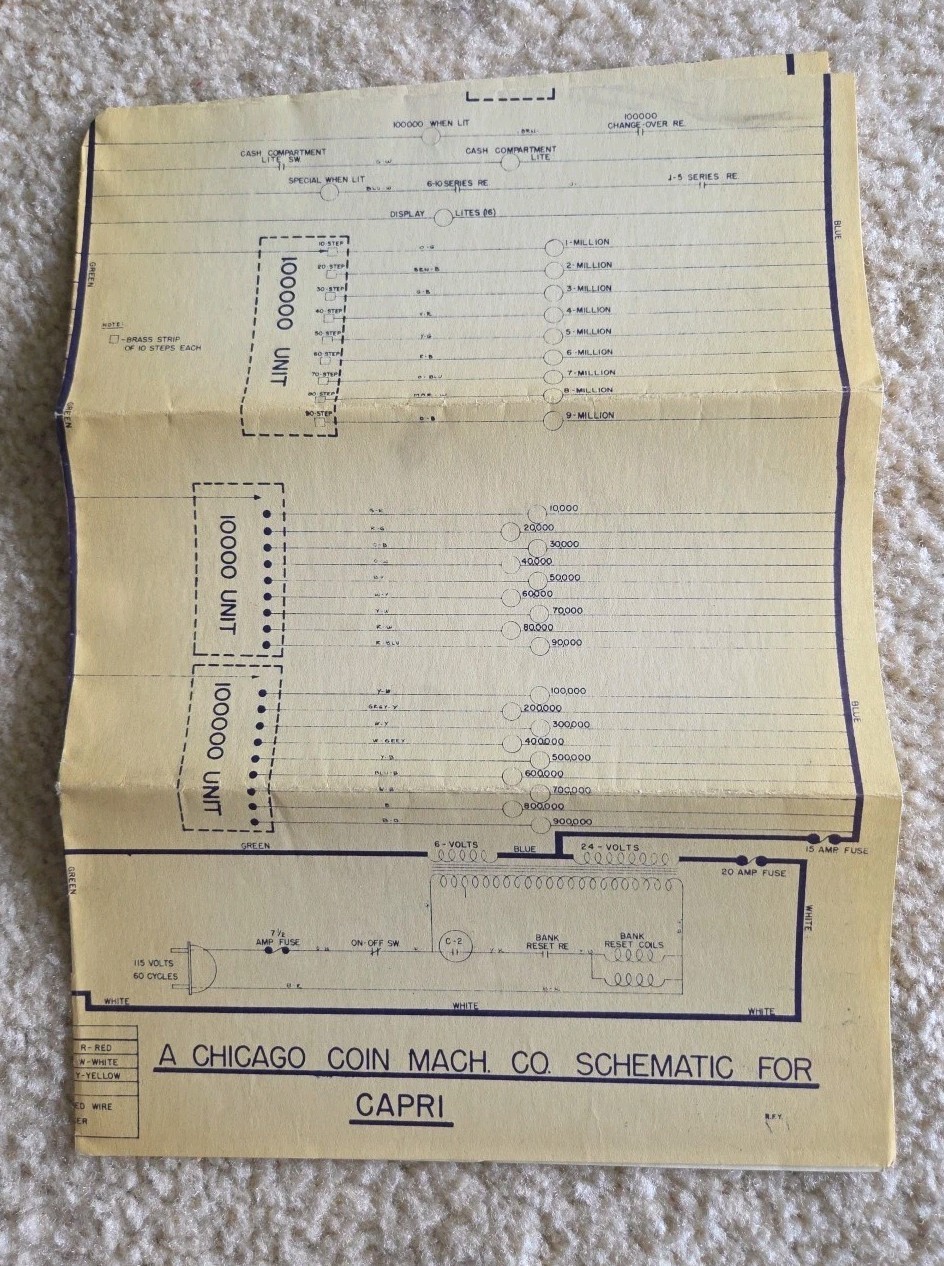 100000 WHEN LIT
100000
CHANGE-OVER RE.
BRN.
CASH COMPARTMENT
LITE SW.
CASH COMPARTMENT
LITE
SPECIAL WHEN LIT
BLU-W
6-10 SERIES RE
1-5 SERIES RE
DISPLAY LITES (16)
BLUE
GREEN
100000 UNIT
10-STEP
O-G
1-MILLION
20-STEP
BRN-B
2-MILLION
30-STEP
3-MILLION
40-STEP
4-MILLION
50-STEP
Y-G
5-MILLION
60-STEP
6-MILLION
70-STEP
7-MILLION
80-STEP
8-MILLION
90-STEP
9-MILLION
NOTE:
-BRASS STRIP
OF 10 STEPS EACH
GREEN
10000 UNIT
10,000
20,000
30,000
40,000
50,000
W-Y
60,000
70,000
R-W
80,000
R-BLU
90,000
100000 UNIT
100,000
GREY-Y
200,000
300,000
W-GREY
400,000
Y-B
500,000
BLU-B
600,000
700,000
B
800,000
900,000
BLUE
GREEN
6-VOLTS
BLUE
24-VOLTS
15 AMP FUSE
20 AMP FUSE
GREEN
WHITE
7½
AMP FUSE
ON-OFF SW.
C-2
BANK
RESET RE
BANK
RESET COILS
115 VOLTS
60 CYCLES
WHITE
WHITE
WHITE
R-RED
W-WHITE
Y-YELLOW
ED WIRE
ER
A CHICAGO COIN MACH. CO. SCHEMATIC FOR
CAPRI
R.F.Y.